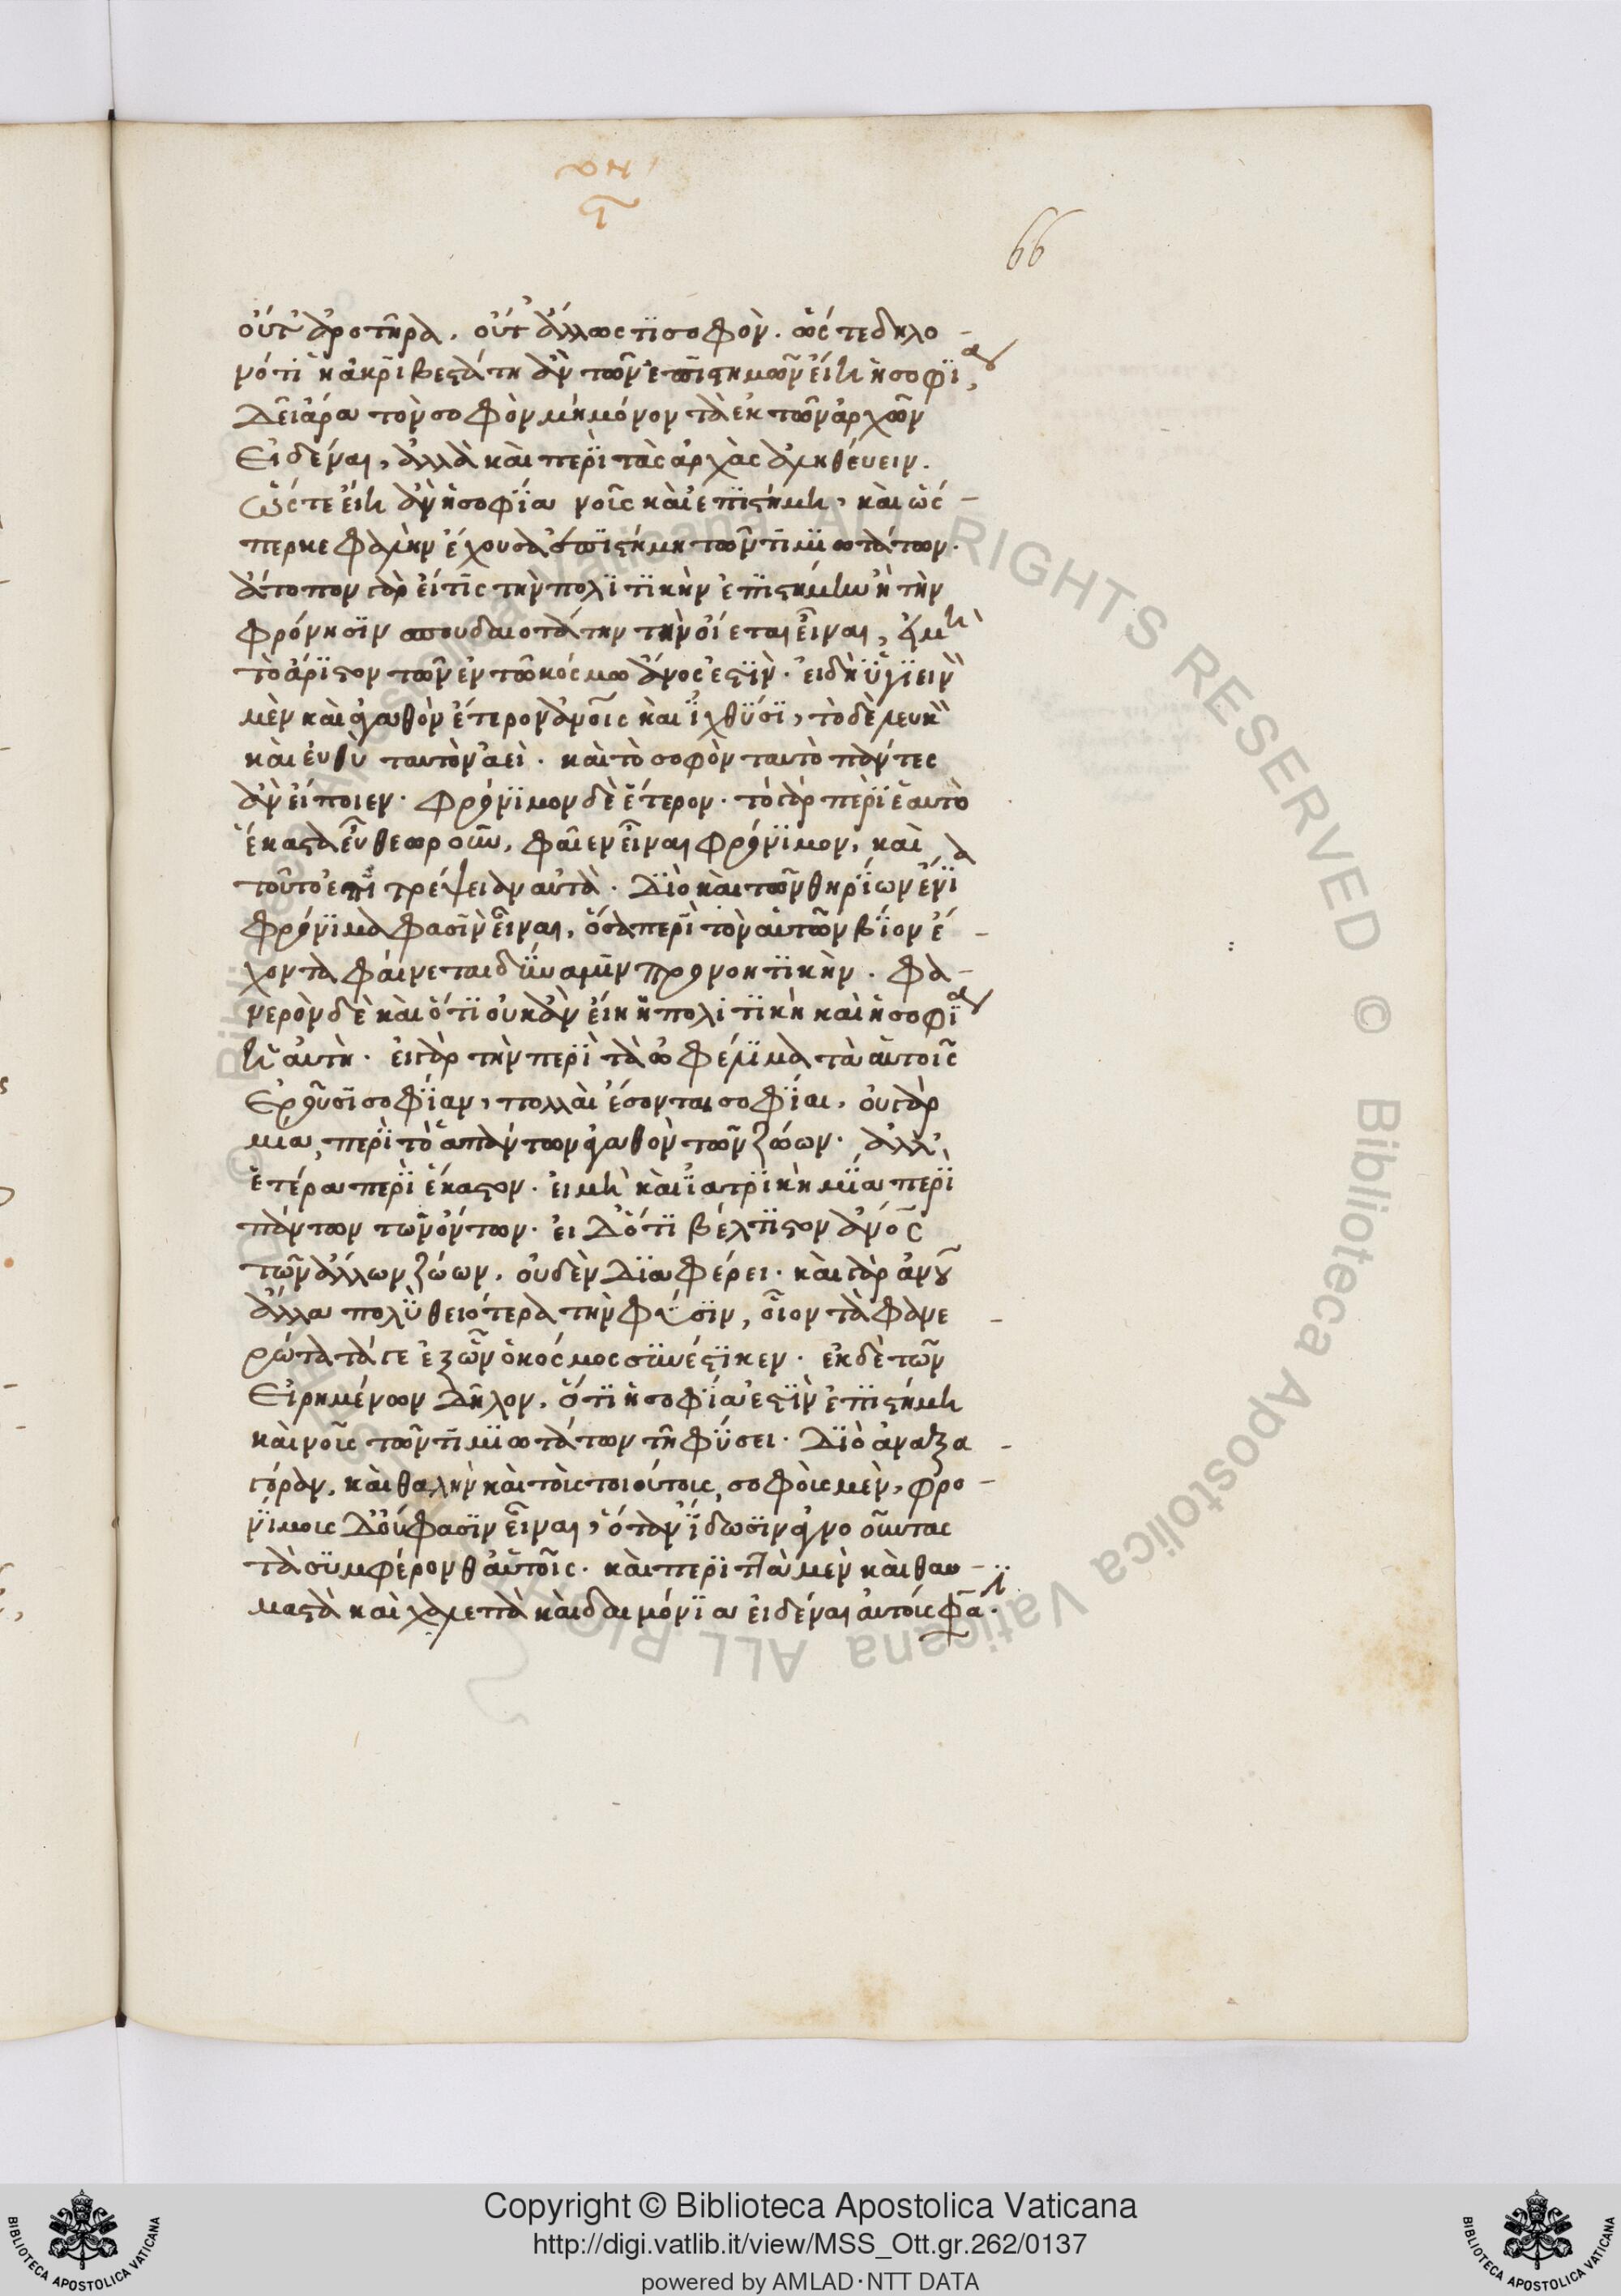 ρη
ϛ
66
οὔτ' ἀροτῆρα. οὔτ' ἄλλως τϊ σοφὸν. ὥστε δηλο-
νότι ἡ ἀκριβεστάτη ἂν τῶν ἐπιστημῶν εἴη ἡ σοφία,
δεῖ ἄρα τὸν σοφὸν μὴ μόνον τὰ ἐκ τῶν ἀρχῶν
εἰδέναι, ἀλλὰ καὶ περὶ τὰς ἀρχὰς ἀληθεύειν.
ὥστε εἴη ἂν ἡ σοφία νοῦς καὶ ἐπιστήμη, καὶ ὥσ-
περ κεφαλὴν ἔχουσα ἐπιστήμη τῶν τιμιωτάτων.
ἄτοπον γὰρ εἴ τις τὴν πολιτικὴν ἐπιστήμην ἢ τὴν
φρόνησιν σπουδαιοτάτην τὴν οἴεται εἶναι, εἰ μὴ
τὸ ἄριστον τῶν ἐν τῶ κόσμω ἄνος ἐστὶν. εἰ δὴ ὑγιεινὸν
μὲν καὶ ἀγαθὸν ἕτερον ἀνοις καὶ ἰχθύσι, τὸ δὲ λευκὸν
καὶ εὐθὺ ταυτὸν ἀεὶ. καὶ τὸ σοφὸν ταυτὸ πάντες
ἂν εἴποιεν. φρόνιμον δὲ ἕτερον. τὸ γὰρ περὶ ἑαυτὸ
ἕκαστα εὖ θεωροῦν, φαῖεν εἶναι φρόνιμον, καὶ
τοῦτο ἐπιτρέψειαν αὐτὰ. διὸ καὶ τῶν θηρίων ἔνια
φρόνιμα φασὶν εἶναι, ὅσα περὶ τὸν αὑτῶν βίον ἔ-
χοντα φαίνεται δύναμιν προνοητικὴν. φα-
νερὸν δὲ καὶ ὅτι οὐκ ἂν εἴη ἡ πολιτικὴ καὶ ἡ σοφία
ἡ αὐτὴ. εἰ γὰρ τὴν περὶ τὰ ὠφέλιμα τὰ αὑτοῖς
ἐροῦσι σοφίαν, πολλαὶ ἔσονται σοφίαι, οὐ γὰρ
μία, περὶ τὸ ἁπάντων ἀγαθὸν τῶν ζώων. ἀλλ'
ἑτέρα περὶ ἕκαστον. εἰ μὴ καὶ ἰατρικὴ μία περὶ
πάντων τῶν ὄντων. εἰ δ' ὅτι βέλτιστον ἄνος
τῶν ἄλλων ζώων, οὐδὲν διαφέρει. καὶ γὰρ ἀνου
ἄλλα πολὺ θειότερα τὴν φύσιν, οἷον τὰ φανε-
ρώτατά γε ἐξ ὧν ὁ κόσμος συνέστηκεν. ἐκ δὲ τῶν
εἰρημένων δῆλον, ὅτι ἡ σοφία ἐστὶν ἐπιστήμη
καὶ νοῦς τῶν τιμιωτάτων τῆ φύσει. διὸ ἀναξα-
γόραν, καὶ θαλῆν καὶ τοὺς τοιούτους, σοφοὺς μὲν, φρο-
νίμους δ' οὔ φασιν εἶναι, ὅταν ἴδωσιν ἀγνοοῦντας
τὰ συμφέρονθ' αὑτοῖς. καὶ περιττὰ μὲν καὶ θαυ-
μαστὰ καὶ χαλεπὰ καὶ δαιμόνια εἰδέναι αὐτούς φασι.
Copyright © Biblioteca Apostolica Vaticana
http://digi.vatlib.it/view/MSS_Ott.gr.262/0137
powered by AMLAD·NTT DATA